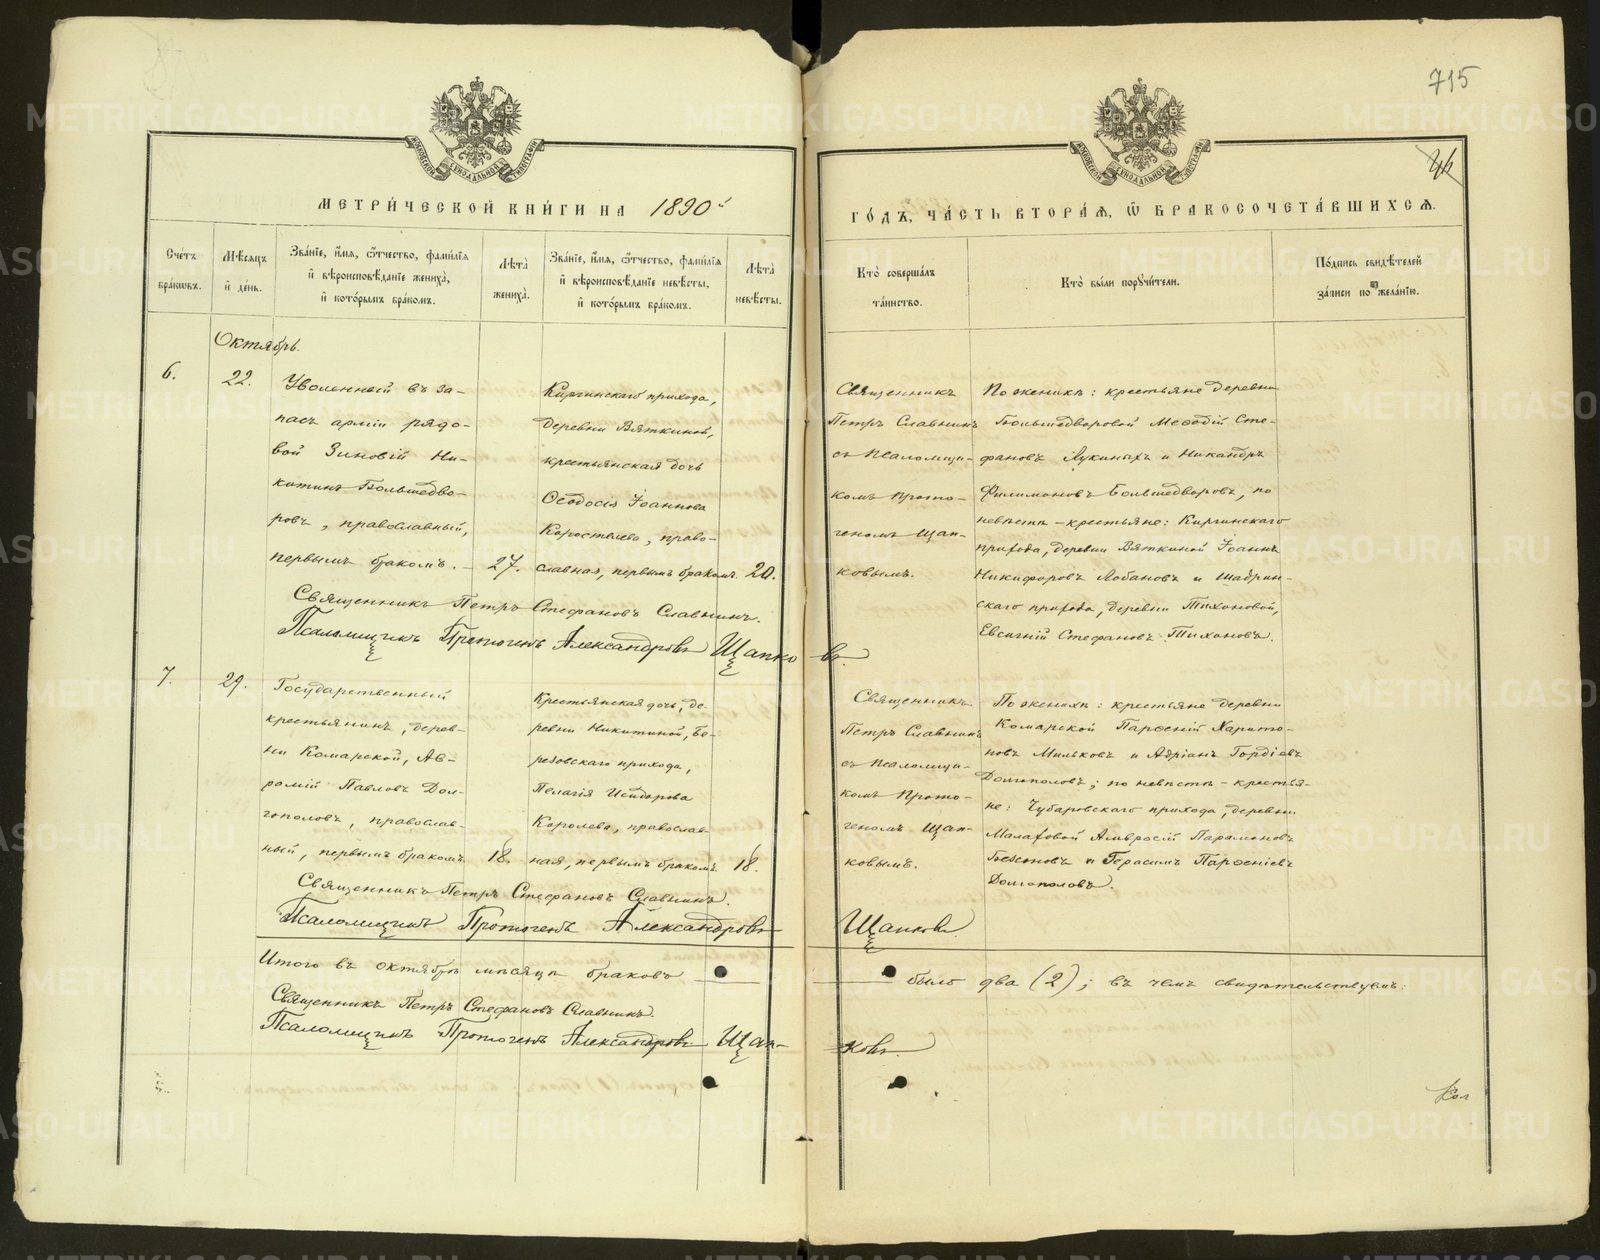 715
46
МОСКОВСКОЙ СѴНОДАЛЬНОЙ ТИПОГРАФІИ
МОСКОВСКОЙ СѴНОДАЛЬНОЙ ТИПОГРАФІИ
МЕТРИ́ЧЕСКОЙ КНИ́ГИ НА 1890й
ГО́ДЪ, ЧА́СТЬ ВТОРА́Я, Ѡ БРАКОСОЧЕТА́ВШИХСЯ.
Сче́тъ
бра́кѡвъ.
Мѣ́сяцъ
и́ де́нь.
Зва́нїе, и́мя, ѻ҆́тчество, фами́лїя
и҆ вѣроисповѣ́данїе жениха̀,
и҆ кото́рымъ бра́комъ.
Лѣ́та
жениха̀.
Зва́нїе, и́мя, ѻ҆́тчество, фами́лїя
и҆ вѣроисповѣ́данїе невѣ́сты,
и҆ кото́рымъ бра́комъ.
Лѣ́та
невѣ́сты.
Кто̀ соверша́лъ
та́инство.
Кто̀ бы́ли порꙋчи́тели.
По́дпись свидѣ́телей
за́писи по жела́нїю.
Октябрь.
6.
22.
Уволенный въ за-
пасъ арміи рядо-
вой Зиновій Ни-
китинъ Большедво-
ровъ, православный,
первымъ бракомъ.
27.
Киргинскаго прихода,
деревни Вяткиной,
крестьянская дочь
Ѳеодосія Іоаннова
Коростелева, право-
славная, первымъ бракомъ.
20.
Священникъ
Петръ Славнинъ
съ псаломщи-
комъ Прото-
геномъ Щап-
ковымъ.
По женихѣ: крестьяне деревни
Большедворовой Меѳодій Сте-
фановъ Лукиныхъ и Никандръ
Филимоновъ Большедворовъ, по
невѣстѣ – крестьяне: Киргинскаго
прихода, деревни Вяткиной Іоаннъ
Никифоровъ Лобановъ и Шадрин-
скаго прихода, деревни Тихоновой,
Евсигній Стефановъ Тихоновъ.
Священникъ Петръ Стефановъ Славнинъ.
Псаломщикъ Протогенъ Александровъ Щапковъ.
7.
29.
Государственный
крестьянинъ, дерев-
ни Комарской, Ав-
рамій Павловъ Дол-
гополовъ, православ-
ный, первымъ бракомъ.
18.
Крестьянская дочь, де-
ревни Никитиной, Бе-
резовскаго прихода,
Пелагія Исидорова
Королева, православ-
ная, первымъ бракомъ.
18.
Священникъ
Петръ Славнинъ
съ псаломщи-
комъ Прото-
геномъ Щап-
ковымъ.
По женихѣ: крестьяне деревни
Комарской Парѳеній Харито-
новъ Мильковъ и Адріанъ Гордіевъ
Долгополовъ; по невѣстѣ – крестья-
не: Чубаровскаго прихода, деревни
Малаховой Амвросій Парамоновъ
и Герасимъ Парѳеніевъ
Долгополовъ.
Священникъ Петръ Стефановъ Славнинъ.
Псаломщикъ Протогенъ Александровъ Щапковъ.
Итого въ октябрѣ мѣсяцѣ браковъ было два (2); въ чемъ свидѣтельствуемъ:
Священникъ Петръ Стефановъ Славнинъ.
Псаломщикъ Протогенъ Александровъ Щап-
ковъ.
METRIKI.GASO-URAL.RU